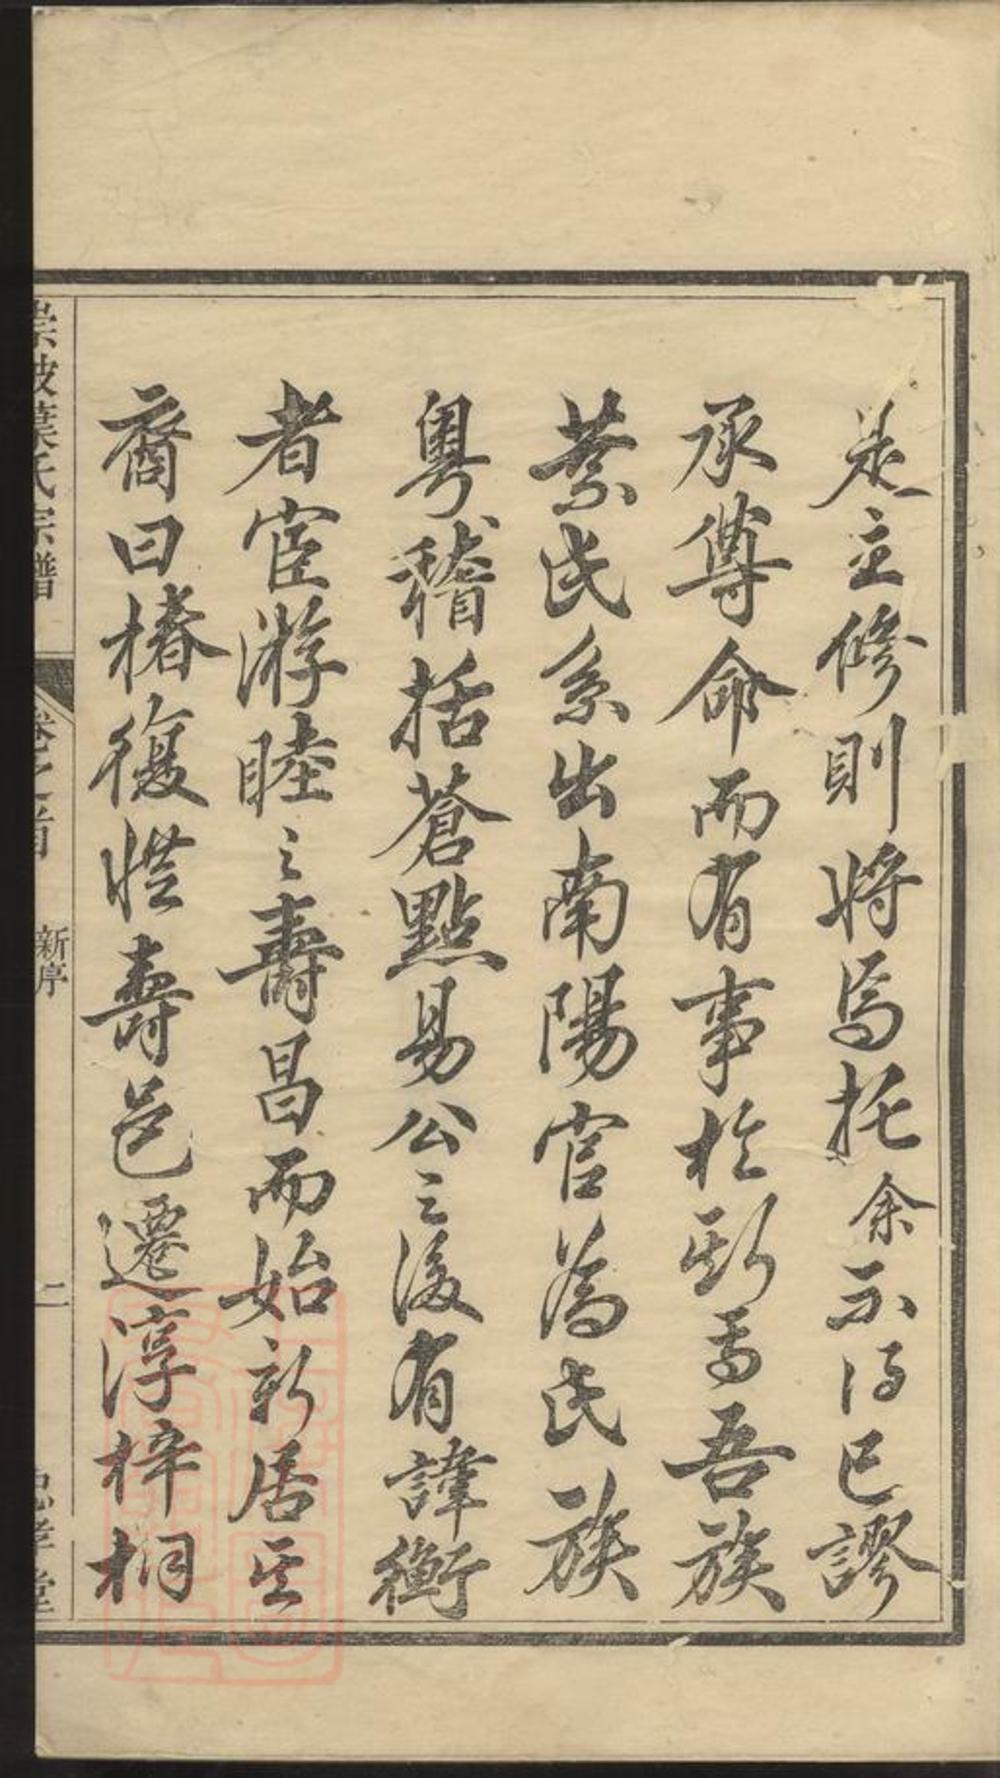 是主修則將焉托余不得已謬
承尊命而有事於斯焉吾族
葉氏系出南陽官為氏族
粵稽括蒼點易公之後有諱衡
者宦游睦之壽昌而始新居至
裔曰椿復遷壽邑遷淳梓桐
葉氏宗譜
卷之首
新序
二